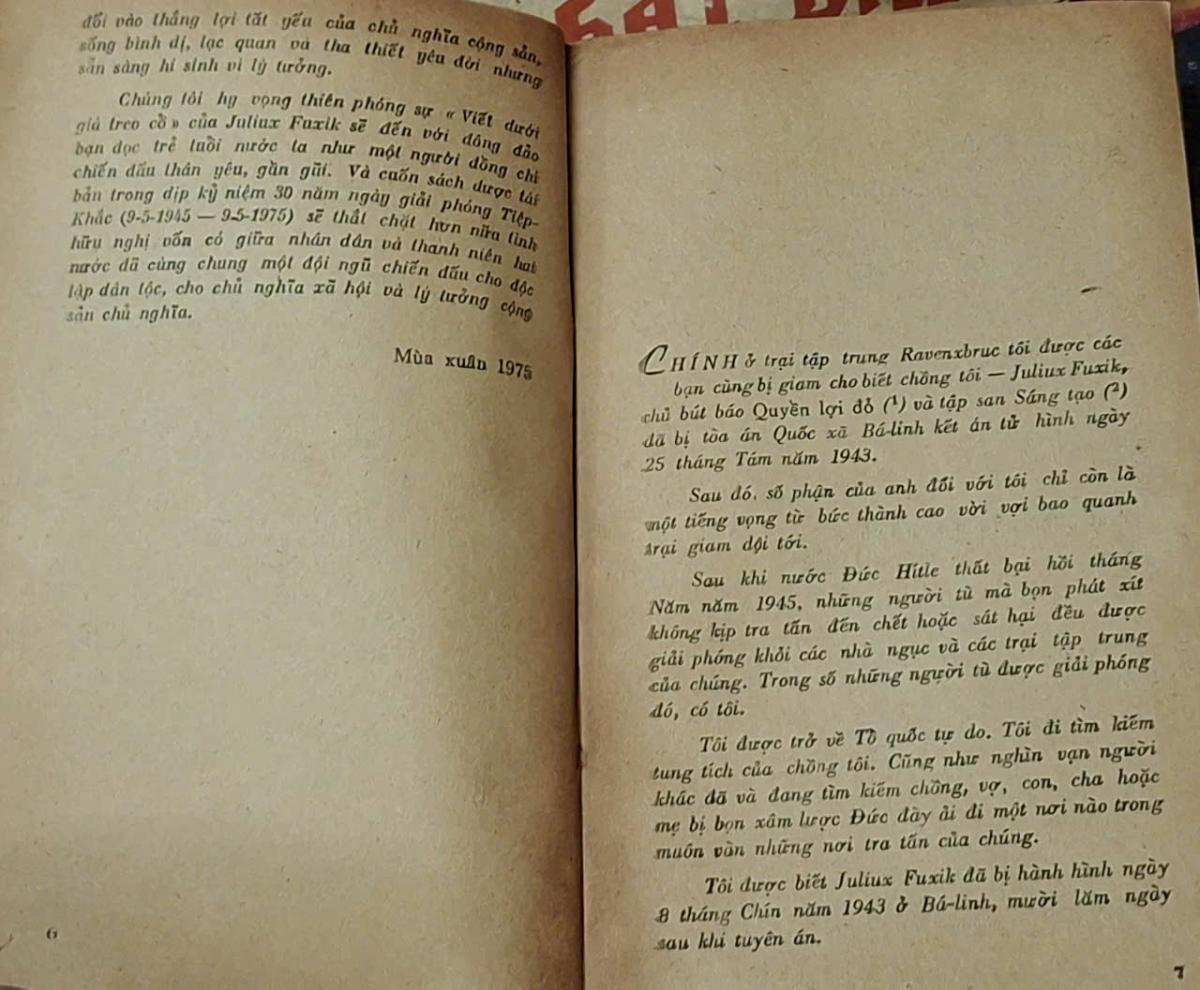 đối vào thắng lợi tất yếu của chủ nghĩa cộng sản,
sống bình dị, lạc quan và tha thiết yêu đời nhưng
sẵn sàng hi sinh vì lý tưởng.
Chúng tôi hy vọng thiên phóng sự « Viết dưới
giá treo cổ » của Juliux Fuxik sẽ đến với đông đảo
bạn đọc trẻ tuổi nước ta như một người đồng chí
chiến đấu thân yêu, gần gũi. Và cuốn sách được tái
bản trong dịp kỷ niệm 30 năm ngày giải phóng Tiệp-
Khắc (9-5-1945 — 9-5-1975) sẽ thắt chặt hơn nữa tình
hữu nghị vốn có giữa nhân dân và thanh niên hai
nước đã cùng chung một đội ngũ chiến đấu cho độc
lập dân tộc, cho chủ nghĩa xã hội và lý tưởng cộng
sản chủ nghĩa.
Mùa xuân 1975
6
CHÍNH ở trại tập trung Ravenxbruc tôi được các
bạn cùng bị giam cho biết chồng tôi — Juliux Fuxik,
chủ bút báo Quyền lợi đỏ (1) và tập san Sáng tạo (2)
đã bị tòa án Quốc xã Bá-linh kết án tử hình ngày
25 tháng Tám năm 1943.
Sau đó, số phận của anh đối với tôi chỉ còn là
một tiếng vọng từ bức thành cao vời vợi bao quanh
trại giam dội tới.
Sau khi nước Đức Hítle thất bại hồi tháng
Năm năm 1945, những người tù mà bọn phát xít
không kịp tra tấn đến chết hoặc sát hại đều được
giải phóng khỏi các nhà ngục và các trại tập trung
của chúng. Trong số những người tù được giải phóng
đó, có tôi.
Tôi được trở về Tổ quốc tự do. Tôi đi tìm kiếm
tung tích của chồng tôi. Cũng như nghìn vạn người
khác đã và đang tìm kiếm chồng, vợ, con, cha hoặc
mẹ bị bọn xâm lược Đức đày ải đi một nơi nào trong
muôn vàn những nơi tra tấn của chúng.
Tôi được biết Juliux Fuxik đã bị hành hình ngày
8 tháng Chín năm 1943 ở Bá-linh, mười lăm ngày
sau khi tuyên án.
7